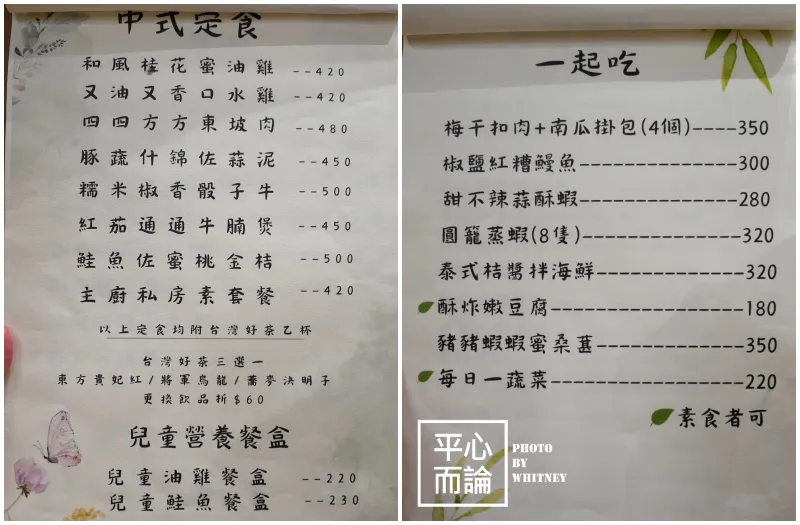 中式定食
和風桂花蜜油雞--420
又油又香口水雞--420
四四方方東坡肉--480
豚蔬什錦佐蒜泥--450
糯米椒香骰子牛--500
紅茄通通牛腩煲--450
鮭魚佐蜜桃金桔--500
主廚私房素套餐--420
以上定食均附台灣好茶乙杯
台灣好茶三選一
東方貴妃紅/將軍烏龍/蕎麥決明子
更換飲品折$60
兒童營養餐盒
兒童油雞餐盒--220
兒童鮭魚餐盒--230
一起吃
梅干扣肉+南瓜掛包(4個)----350
椒鹽紅糟鰻魚---------------300
甜不辣蒜酥蝦---------------280
圓籠蒸蝦(8隻)---------------320
泰式桔醬拌海鮮--------------320
酥炸嫩豆腐------------------180
豬豬蝦蝦蜜桑葚--------------350
每日一蔬菜------------------220
素食者可
平心而論
PHOTO
BY
WHITNEY